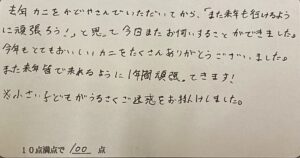 去年カニをかどやさんでいただいてから、「また来年も行けるよう
に頑張ろう!」と思って今日またお伺いすることができました。
今年もとてもおいしいカニをたくさんありがとうございました。
また来年皆で来れるように1年間頑張ってきます!
※小さい子どもがうるさくご迷惑をお掛けしました。
10点満点で 100 点